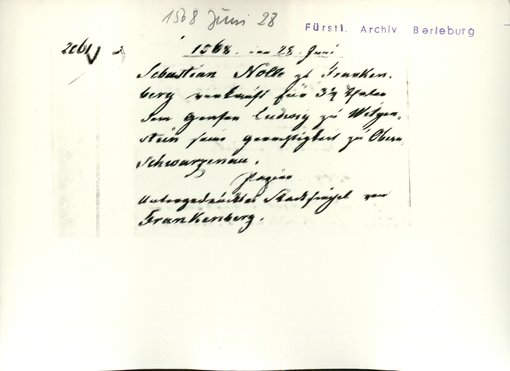 1568 Juni 28
Fürstl. Archiv Berleburg
1568. den 28. Juni
Sebastian Nolte zu Franken-
berg verkauft für 34 Thaler
dem Grafen Ludwig zu Witgen-
stein seine Gerechtigkeit zu Obern
Schwarzenau.
Papier
Untergedrücktes Stadtsiegel von
Frankenberg.